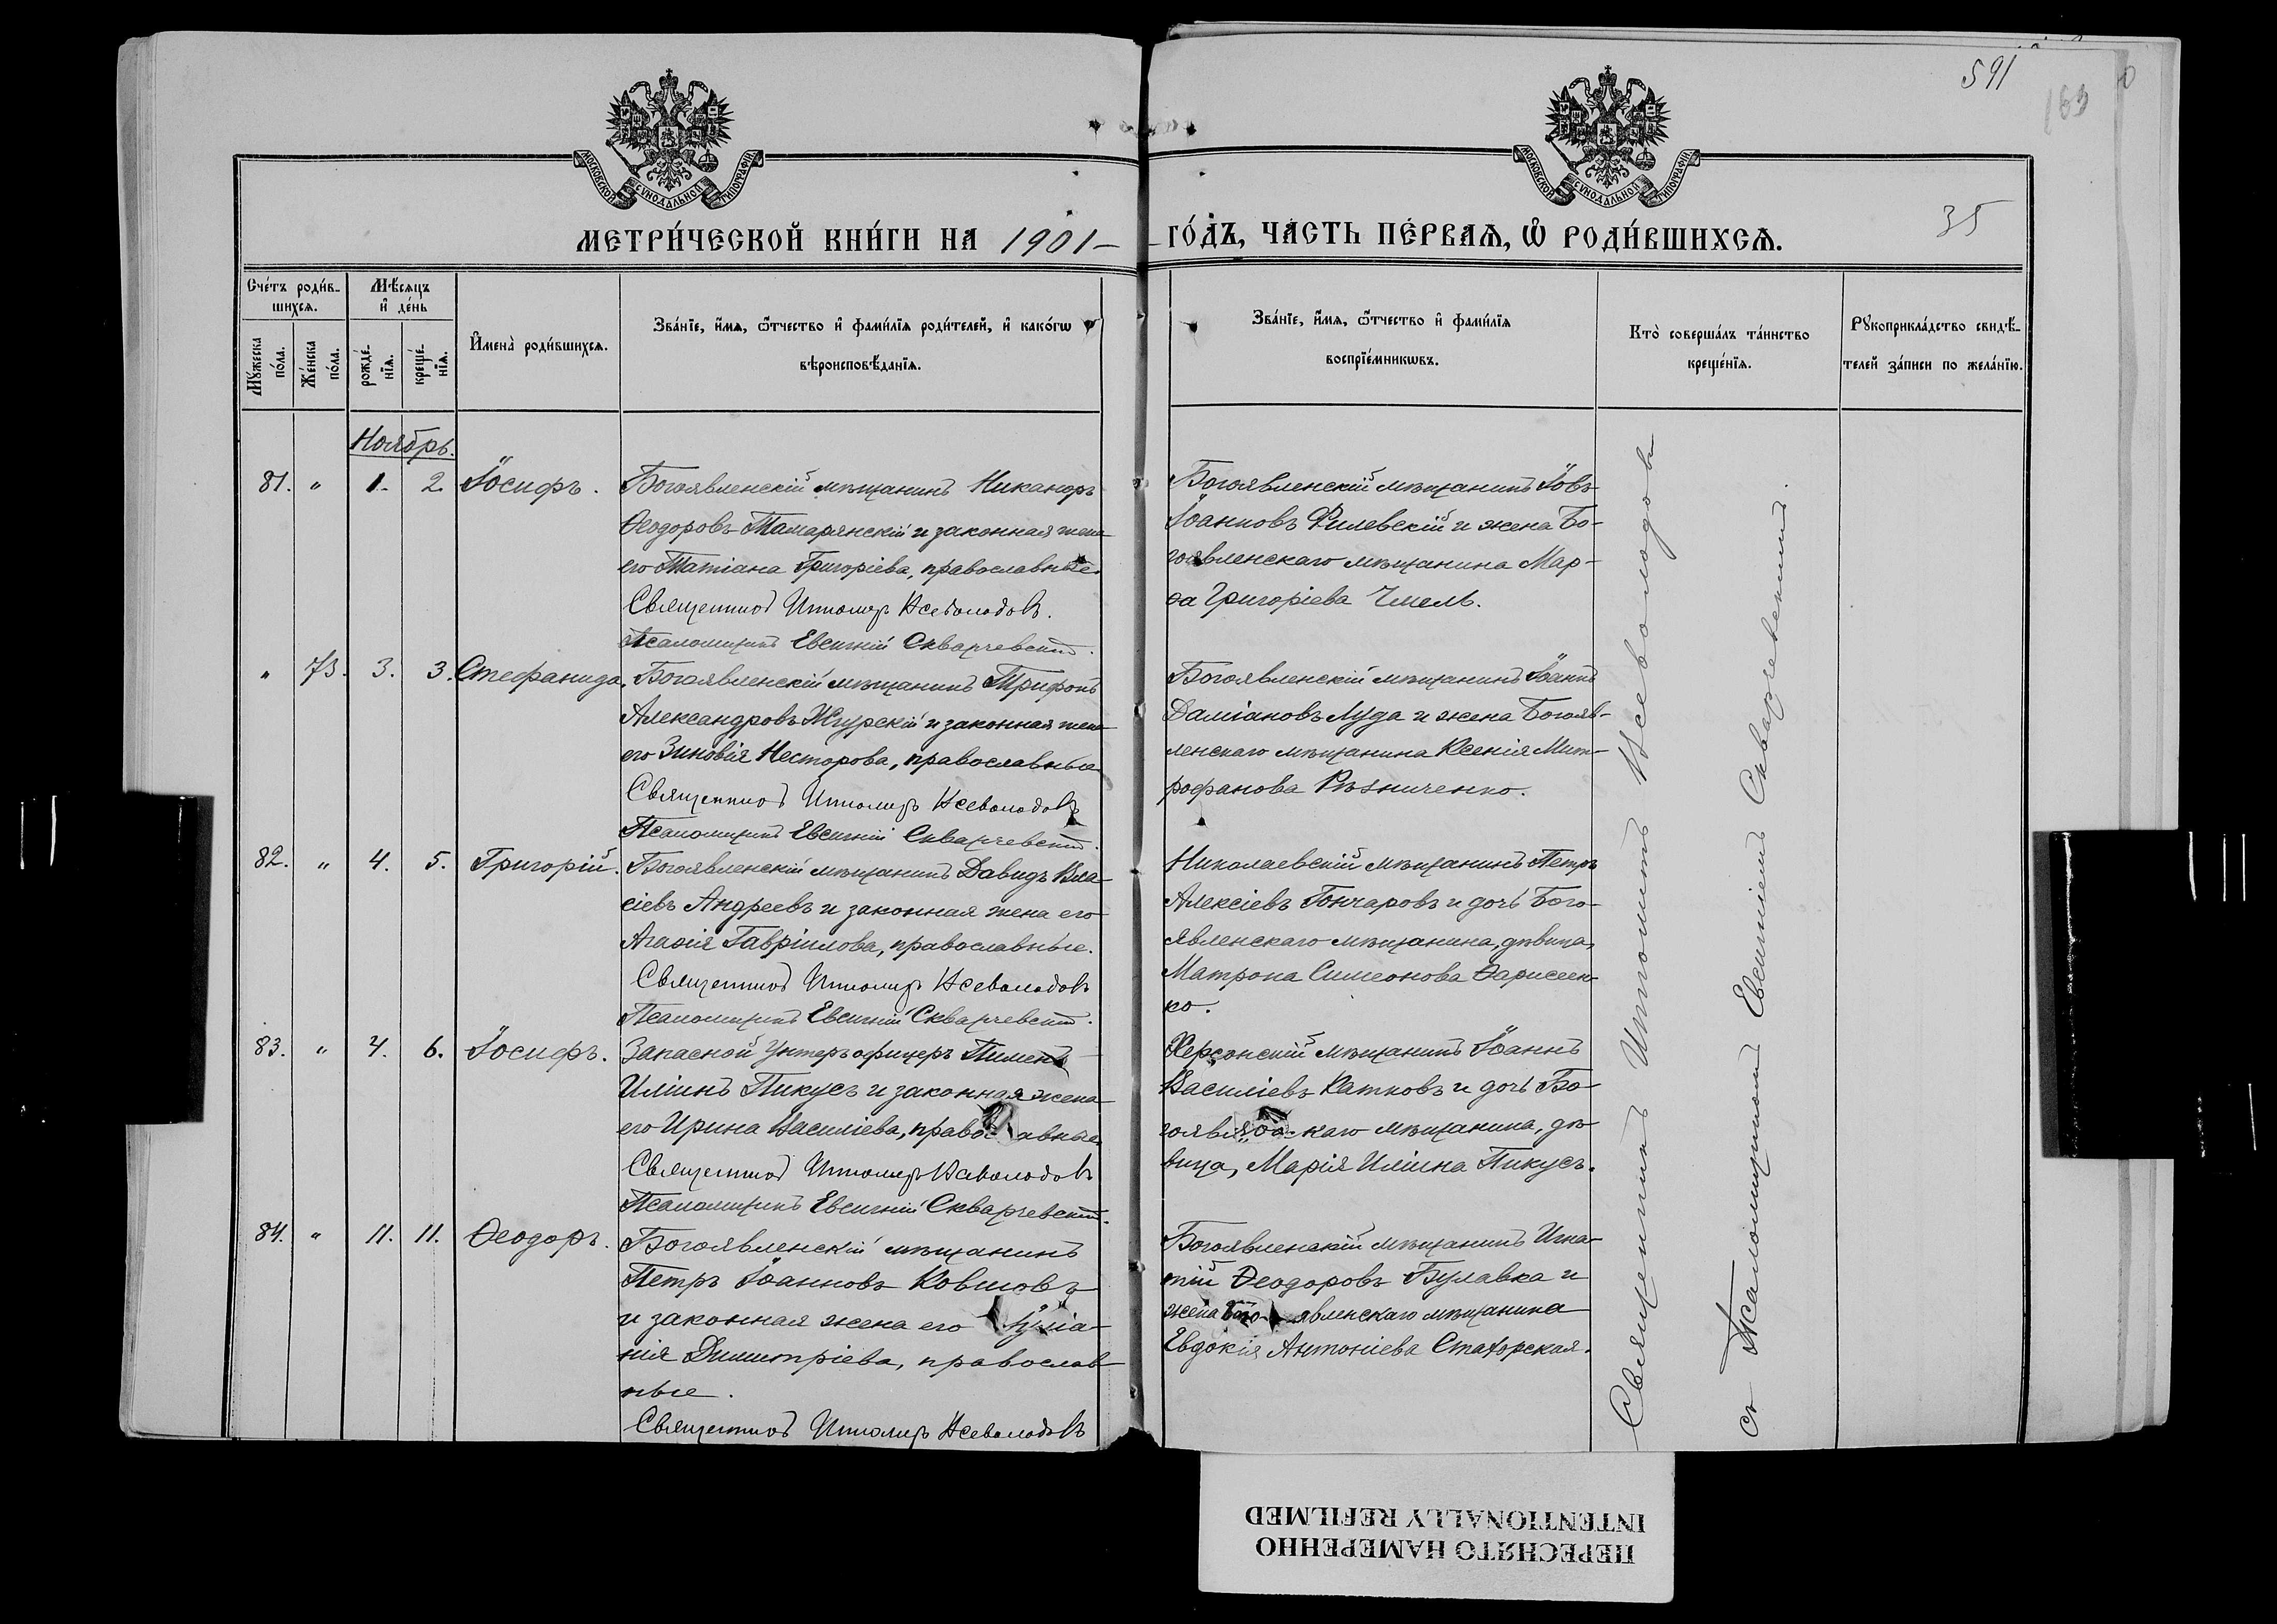 591
163
МОСКОВСКОЙ СѴНОДАЛЬНОЙ ТИПОГРАФІИ
МОСКОВСКОЙ СѴНОДАЛЬНОЙ ТИПОГРАФІИ
МЕТРИ́ЧЕСКОЙ КНИ́ГИ НА 1901 –
ГО́ДЪ, ЧА́СТЬ ПЕ́РВАѦ, Ѽ РОДИ́ВШИХСѦ.
35
Сче́тъ роди́в-
шихсѧ.
Мѣ́сѧцъ
и҆ де́нь
Мꙋ́жеска
по́ла.
Же́нска
по́ла.
рожде́-
нїѧ.
креще́-
нїѧ.
И҆мена̀ роди́вшихсѧ.
Зва́нїе, и҆́мѧ, ѻ҆́тчество и҆ фами́лїѧ роди́телей, и҆ како́гѡ
вѣроисповѣ́данїѧ.
Зва́нїе, и҆́мѧ, ѻ҆́тчество и҆ фами́лїѧ
воспрїе́мникѡвъ.
Кто̀ соверша́лъ та́инство
креще́нїѧ.
Рꙋкоприкла́дство свидѣ́-
телей за́писи по жела́нїю.
Ноябрь.
81. " 1. 2. Іосифъ.
Богоявленскій мѣщанинъ Никаноръ
Ѳеодоровъ Тамарянскій и законная жена
его Татіана Григоріева, православные.
Священникъ Ипполитъ Всеволодовъ.
Псаломщикъ Евгеній Скварчевскій.
Богоявленскій мѣщанинъ Іовъ
Іоанновъ Рилевскій и жена Бо-
гоявленскаго мѣщанина Мар-
ѳа Григоріева Чмель.
" 73. 3. 3. Стефанида.
Богоявленскій мѣщанинъ Трифонъ
Александровъ Жгурскій и законная жена
его Зиновія Несторова, православные
Священникъ Ипполитъ Всеволодовъ
Псаломщикъ Евгеній Скварчевскій.
Богоявленскій мѣщанинъ Іоаннъ
Даміановъ Луда и жена Богояв-
ленскаго мѣщанина Ксенія Мит-
рофанова Рѣзниченко.
82. " 4. 5. Григорій.
Богоявленскій мѣщанинъ Давидъ Вла-
сіевъ Андреевъ и законная жена его
Агаѳія Гавріилова, православные.
Священникъ Ипполитъ Всеволодовъ
Псаломщикъ Евгеній Скварчевскій.
Николаевскій мѣщанинъ Петръ
Алексіевъ Гончаровъ и дочь Бого-
явленскаго мѣщанина, дѣвица,
Матрона Симеонова Ѳарисеен-
ко.
83. " 4. 6. Іосифъ.
Запасной Унтеръ офицеръ Пименъ
Иліинъ Пикусъ и законная жена
его Ирина Василіева, правос авные
Священникъ Ипполитъ Всеволодовъ
Псаломщикъ Евгеній Скварчевскій.
Херсонскій мѣщанинъ Іоаннъ
Василіевъ Катковъ и дочь Бо-
гоявл каго мѣщанина, дѣ-
вица, Марія Иліина Пикусъ.
84. " 11. 11. Ѳеодоръ.
Богоявленскій мѣщанинъ
Петръ Іоанновъ Ковшовъ
и законная жена его Іуліа-
нія Димитріева, православ-
ные.
Священникъ Ипполитъ Всеволодовъ
Богоявленскій мѣщанинъ Игна-
тій Ѳеодоровъ Булавка и
жена Бого-явленскаго мѣщанина
Евдокія Антоніева Стахорская.
Священникъ Ипполитъ Всеволодовъ
съ Псаломщикомъ Евгеніемъ Скварчевскимъ.
ПЕРЕСНЯТО НАМЕРЕННО
INTENTIONALLY REFILMED